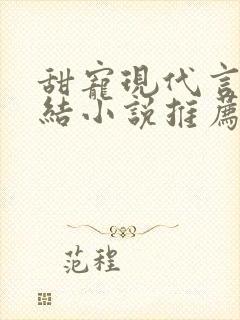 甜寵現代言
結小說推薦
范程